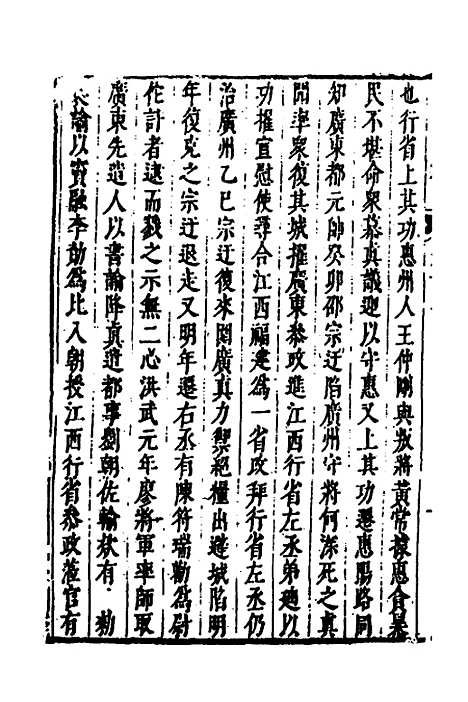 也行省上其功惠州人王仲剛與叛將黃常據惠會暴
民不堪命眾慕真議迎以守惠又上其功遷惠陽路同
知廣東都元帥癸卯邵宗迂陷廣州守將何深死之真
聞率眾復其城擢廣東參政進江西行省左丞弟迪以
功擢宣慰使譯合江西福建為一省改拜行省左丞仍
治廣州乙巳宗迂復來圍廣真力禦絕糧出避城陷明
年復克之宗迂退走又明年遷右丞有陳符瑞勸為尉
佗計者逮而戮之示無二心洪武元年廖將軍率師取
廣東先遣人以書諭降真遣都事劉朝佐輸欵有勑
諭以竇融李勣為比入朝授江西行省參政蒞官有